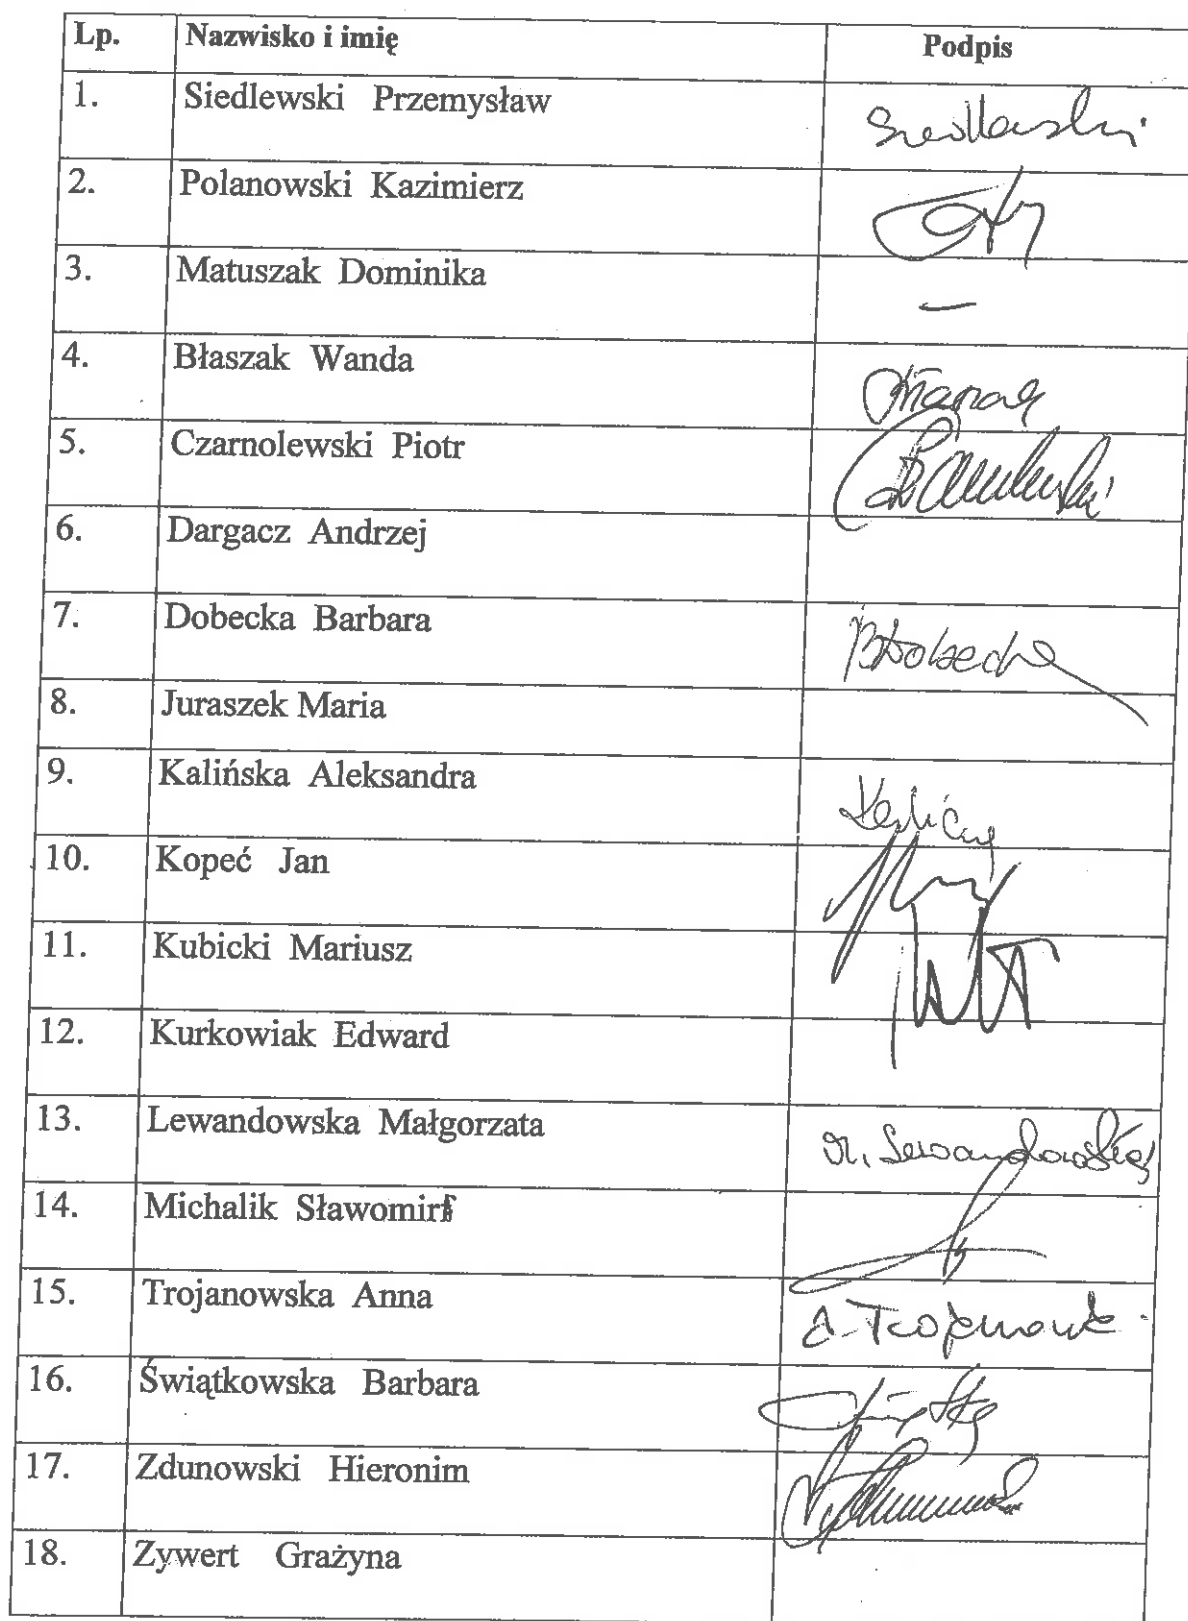 Lp. Nazwisko i imię Podpis
1. Siedlewski Przemysław Siedlewski
2. Polanowski Kazimierz
3. Matuszak Dominika —
4. Błaszak Wanda
5. Czarnolewski Piotr
6. Dargacz Andrzej
7. Dobecka Barbara BDobecka
8. Juraszek Maria
9. Kalińska Aleksandra
10. Kopeć Jan
11. Kubicki Mariusz
12. Kurkowiak Edward
13. Lewandowska Małgorzata M. Lewandowska
14. Michalik Sławomir
15. Trojanowska Anna A. Trojanowska
16. Świątkowska Barbara
17. Zdunowski Hieronim
18. Zywert Grażyna